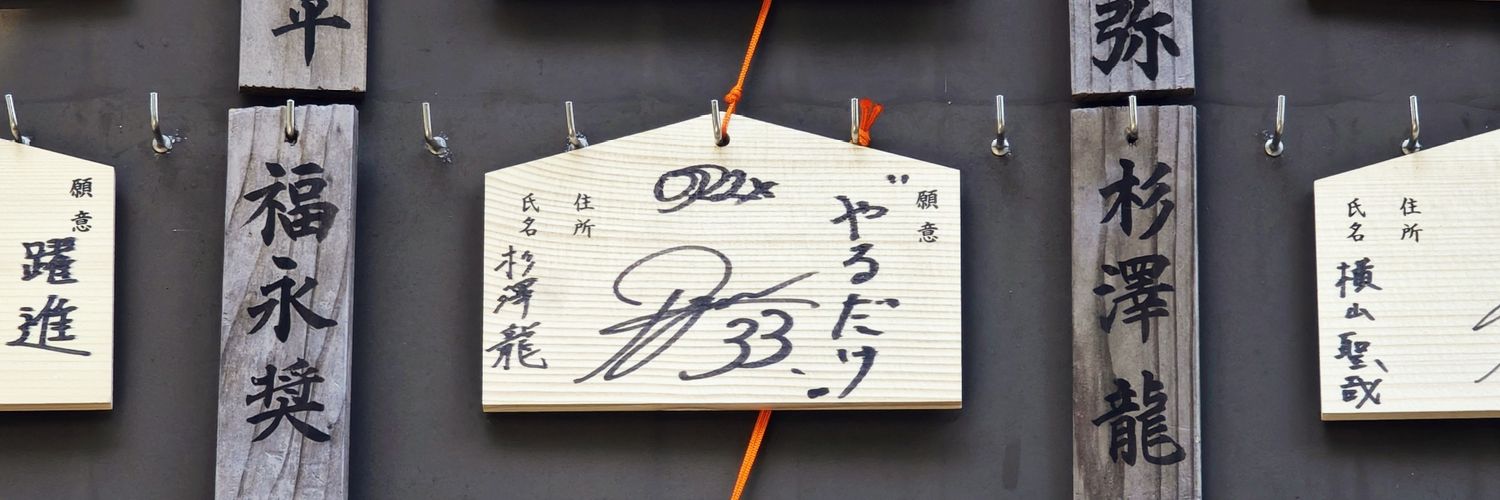 弥
杉澤龍
願意
"やるだけ"
33
住所
氏名
杉澤龍
平
福永奨
願意
躍進
住所
氏名
横山聖哉